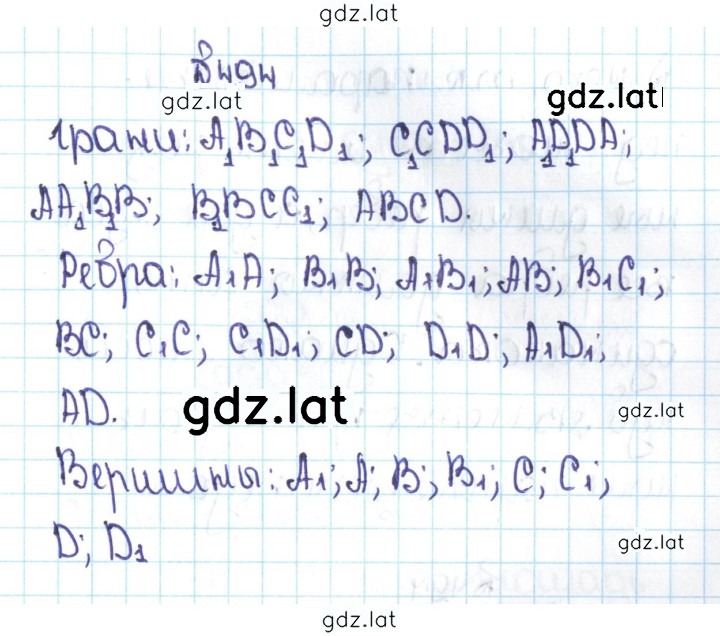 gdz.lat
В494
gdz.lat
gdz.lat
Грани: A₁B₁C₁D₁; C₁CDD₁; A₁D₁DA;
AA₁B₁B; B₁BCC₁; ABCD.
Ребра: A₁A; B₁B; A₁B₁; AB; B₁C₁;
BC; C₁C; C₁D₁; CD; D₁D; A₁D₁;
AD.
gdz.lat
gdz.lat
Вершины: A₁; A; B; B₁; C; C₁;
D; D₁
gdz.lat
gdz.lat